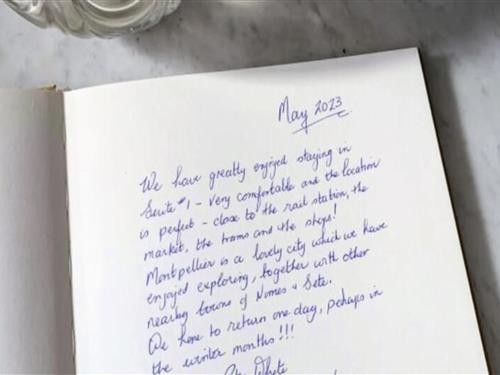 May 2023
We have greatly enjoyed staying in
Suite #1 - very comfortable and the location
is perfect - close to the rail station, the
market, the trams and the shops!
Montpellier is a lovely city which we have
enjoyed exploring, together with other
nearby towns of Nimes & Sete.
We hope to return one day, perhaps in
the winter months!!!
White